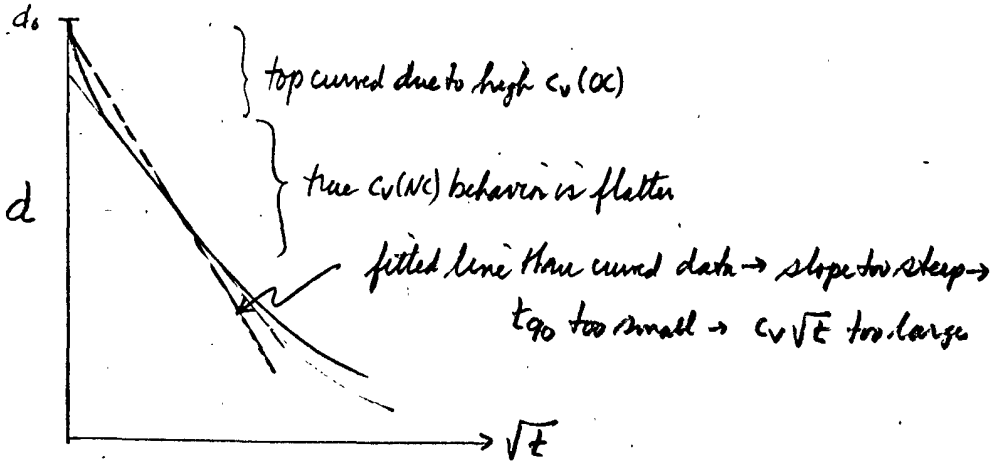 d₀
top curved due to high cᵥ(OC)
true cᵥ(NC) behavior is flatter
d
fitted line thru curved data → slope too steep →
t₉₀ too small → cᵥ√t too large
√t